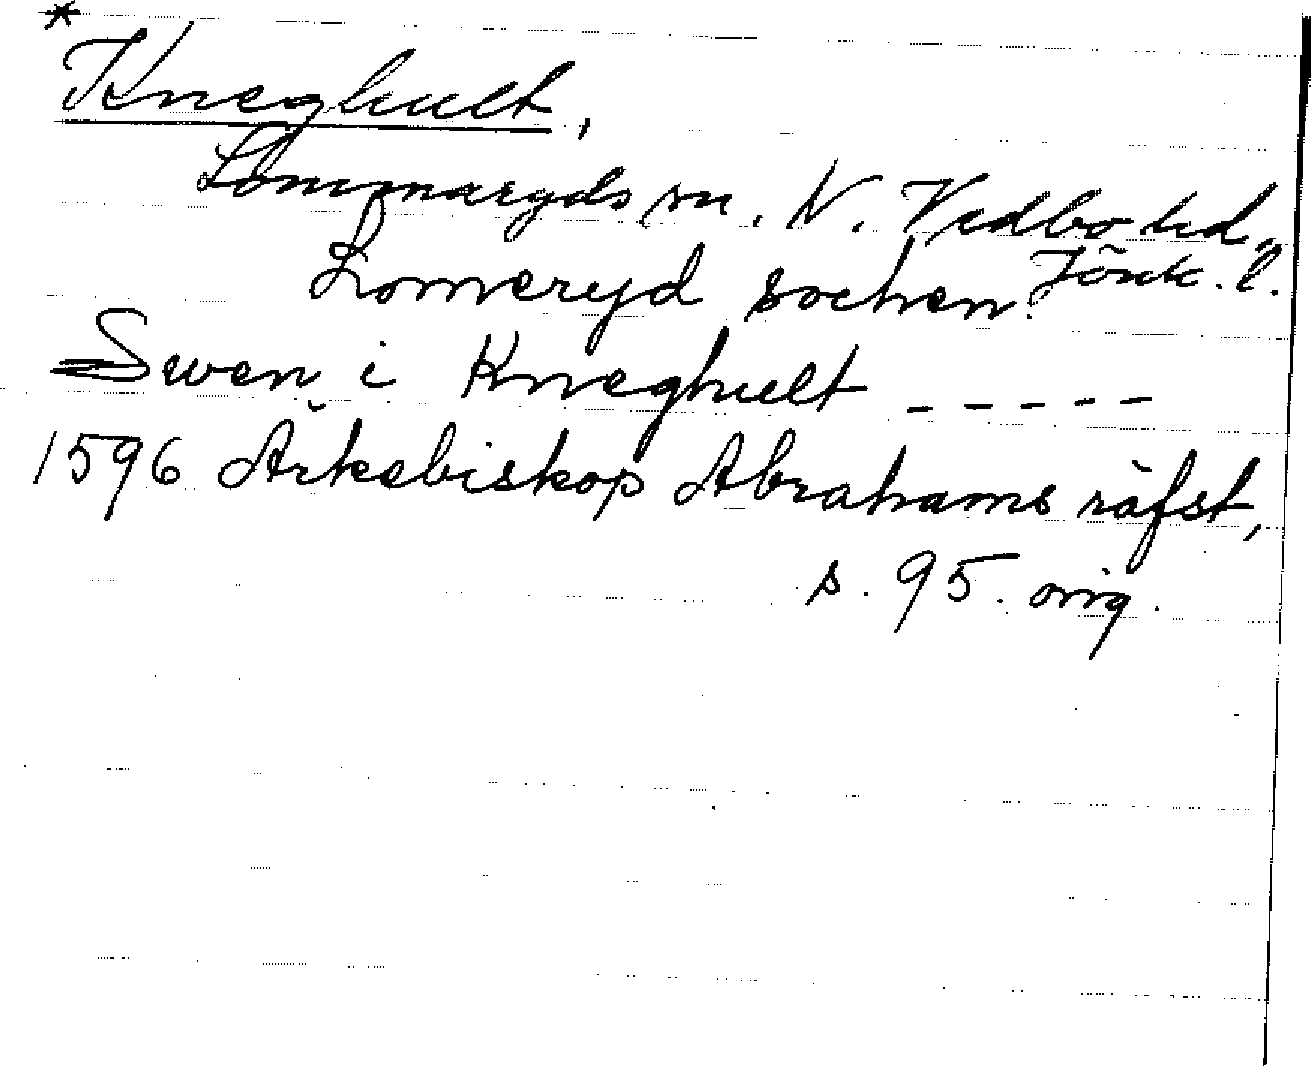 *
Kneghult,
Lommaryds sn. N. Vedbo hd.,
Jönk. l.
Lomeryd sochen.
Swen i Kneghult -----
1596 Ärkebiskop Abrahams räfst,
s. 95. orig.